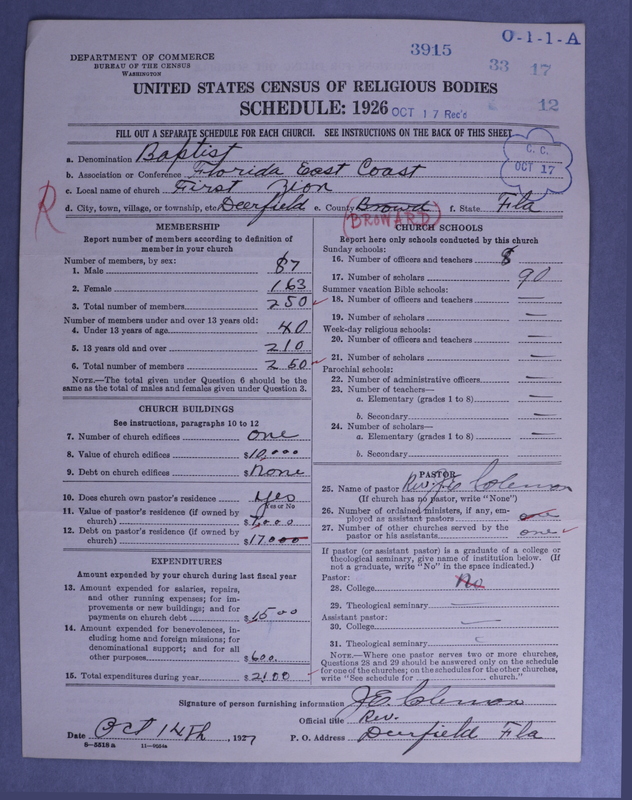 3915
O-1-1-A
33 17
12
DEPARTMENT OF COMMERCE
BUREAU OF THE CENSUS
WASHINGTON
UNITED STATES CENSUS OF RELIGIOUS BODIES
SCHEDULE: 1926
OCT 17 Rec'd
FILL OUT A SEPARATE SCHEDULE FOR EACH CHURCH. SEE INSTRUCTIONS ON THE BACK OF THIS SHEET
C. C.
OCT 17
a. Denomination Baptist
b. Association or Conference Florida East Coast
c. Local name of church First Zion
d. City, town, village, or township, etc. Deerfield e. County Broward f. State Fla
R
(BROWARD)
MEMBERSHIP
Report number of members according to definition of
member in your church
Number of members, by sex:
1. Male 87
2. Female 163
3. Total number of members 250
Number of members under and over 13 years old:
4. Under 13 years of age 40
5. 13 years old and over 210
6. Total number of members 250
NOTE.—The total given under Question 6 should be the
same as the total of males and females given under Question 3.
CHURCH BUILDINGS
See instructions, paragraphs 10 to 12
7. Number of church edifices one
8. Value of church edifices $10,000
9. Debt on church edifices $None
10. Does church own pastor's residence Yes
Yes or No
11. Value of pastor's residence (if owned by
church) $7,000
12. Debt on pastor's residence (if owned by
church) $17,000
EXPENDITURES
Amount expended by your church during last fiscal year
13. Amount expended for salaries, repairs,
and other running expenses; for im-
provements or new buildings; and for
payments on church debt $1500
14. Amount expended for benevolences, in-
cluding home and foreign missions; for
denominational support; and for all
other purposes $600.
15. Total expenditures during year $2100
CHURCH SCHOOLS
Report here only schools conducted by this church
Sunday schools:
16. Number of officers and teachers 8
17. Number of scholars 90
Summer vacation Bible schools:
18. Number of officers and teachers —
19. Number of scholars —
Week-day religious schools:
20. Number of officers and teachers —
21. Number of scholars —
Parochial schools:
22. Number of administrative officers —
23. Number of teachers—
a. Elementary (grades 1 to 8) —
b. Secondary —
24. Number of scholars—
a. Elementary (grades 1 to 8) —
b. Secondary —
PASTOR
25. Name of pastor Rev. Coleman
(If church has no pastor, write "None")
26. Number of ordained ministers, if any, em-
ployed as assistant pastors one
27. Number of other churches served by the
pastor or his assistants one
If pastor (or assistant pastor) is a graduate of a college or
theological seminary, give name of institution below. (If
not a graduate, write "No" in the space indicated.)
Pastor:
28. College No
29. Theological seminary —
Assistant pastor:
30. College —
31. Theological seminary
NOTE.—Where one pastor serves two or more churches,
Questions 28 and 29 should be answered only on the schedule
for one of the churches; on the schedules for the other churches,
write "See schedule for church."
Signature of person furnishing information J E Coleman
Official title Rev.
Date Oct 14th, 1927 P. O. Address Deerfield Fla
8-5518a 11-9054a